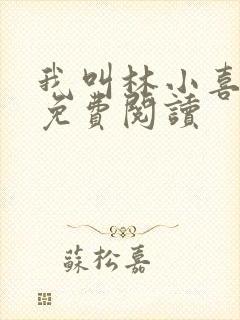 我叫林小喜
免費閱讀
蘇松嘉